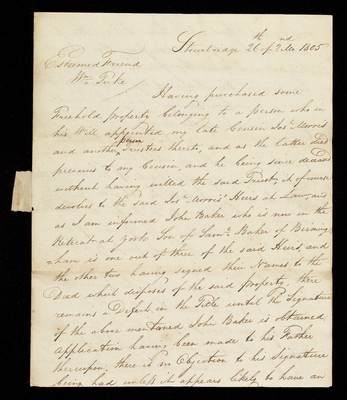 Stourbridge 26th of 2nd Mo 1805
Esteemed Friend
Wm Tuke
Having purchased some
Freehold Property belonging to a Person who in
his Will appointed my late Cousin Jos: Morris
and another person Trustees thereto, and as the latter died
previous to my Cousin, and he being since deceased
without having willed the said Trust, it of course
devolves to the said Jos: Morris' Heirs at Law, and
as I am informed John Baker who is now in the
Retreat at York Son of Saml Baker of Birming-
ham is one out of three of the said Heirs, and
the other two having signed their Names to the
Deed which disposes of the said Property, there
remains a Defect in the Title until the Signature
of the above mentioned John Baker is obtained
Application having been made to his Father
thereupon, there is no Objection to his Signature
being had unless it appears likely to have an